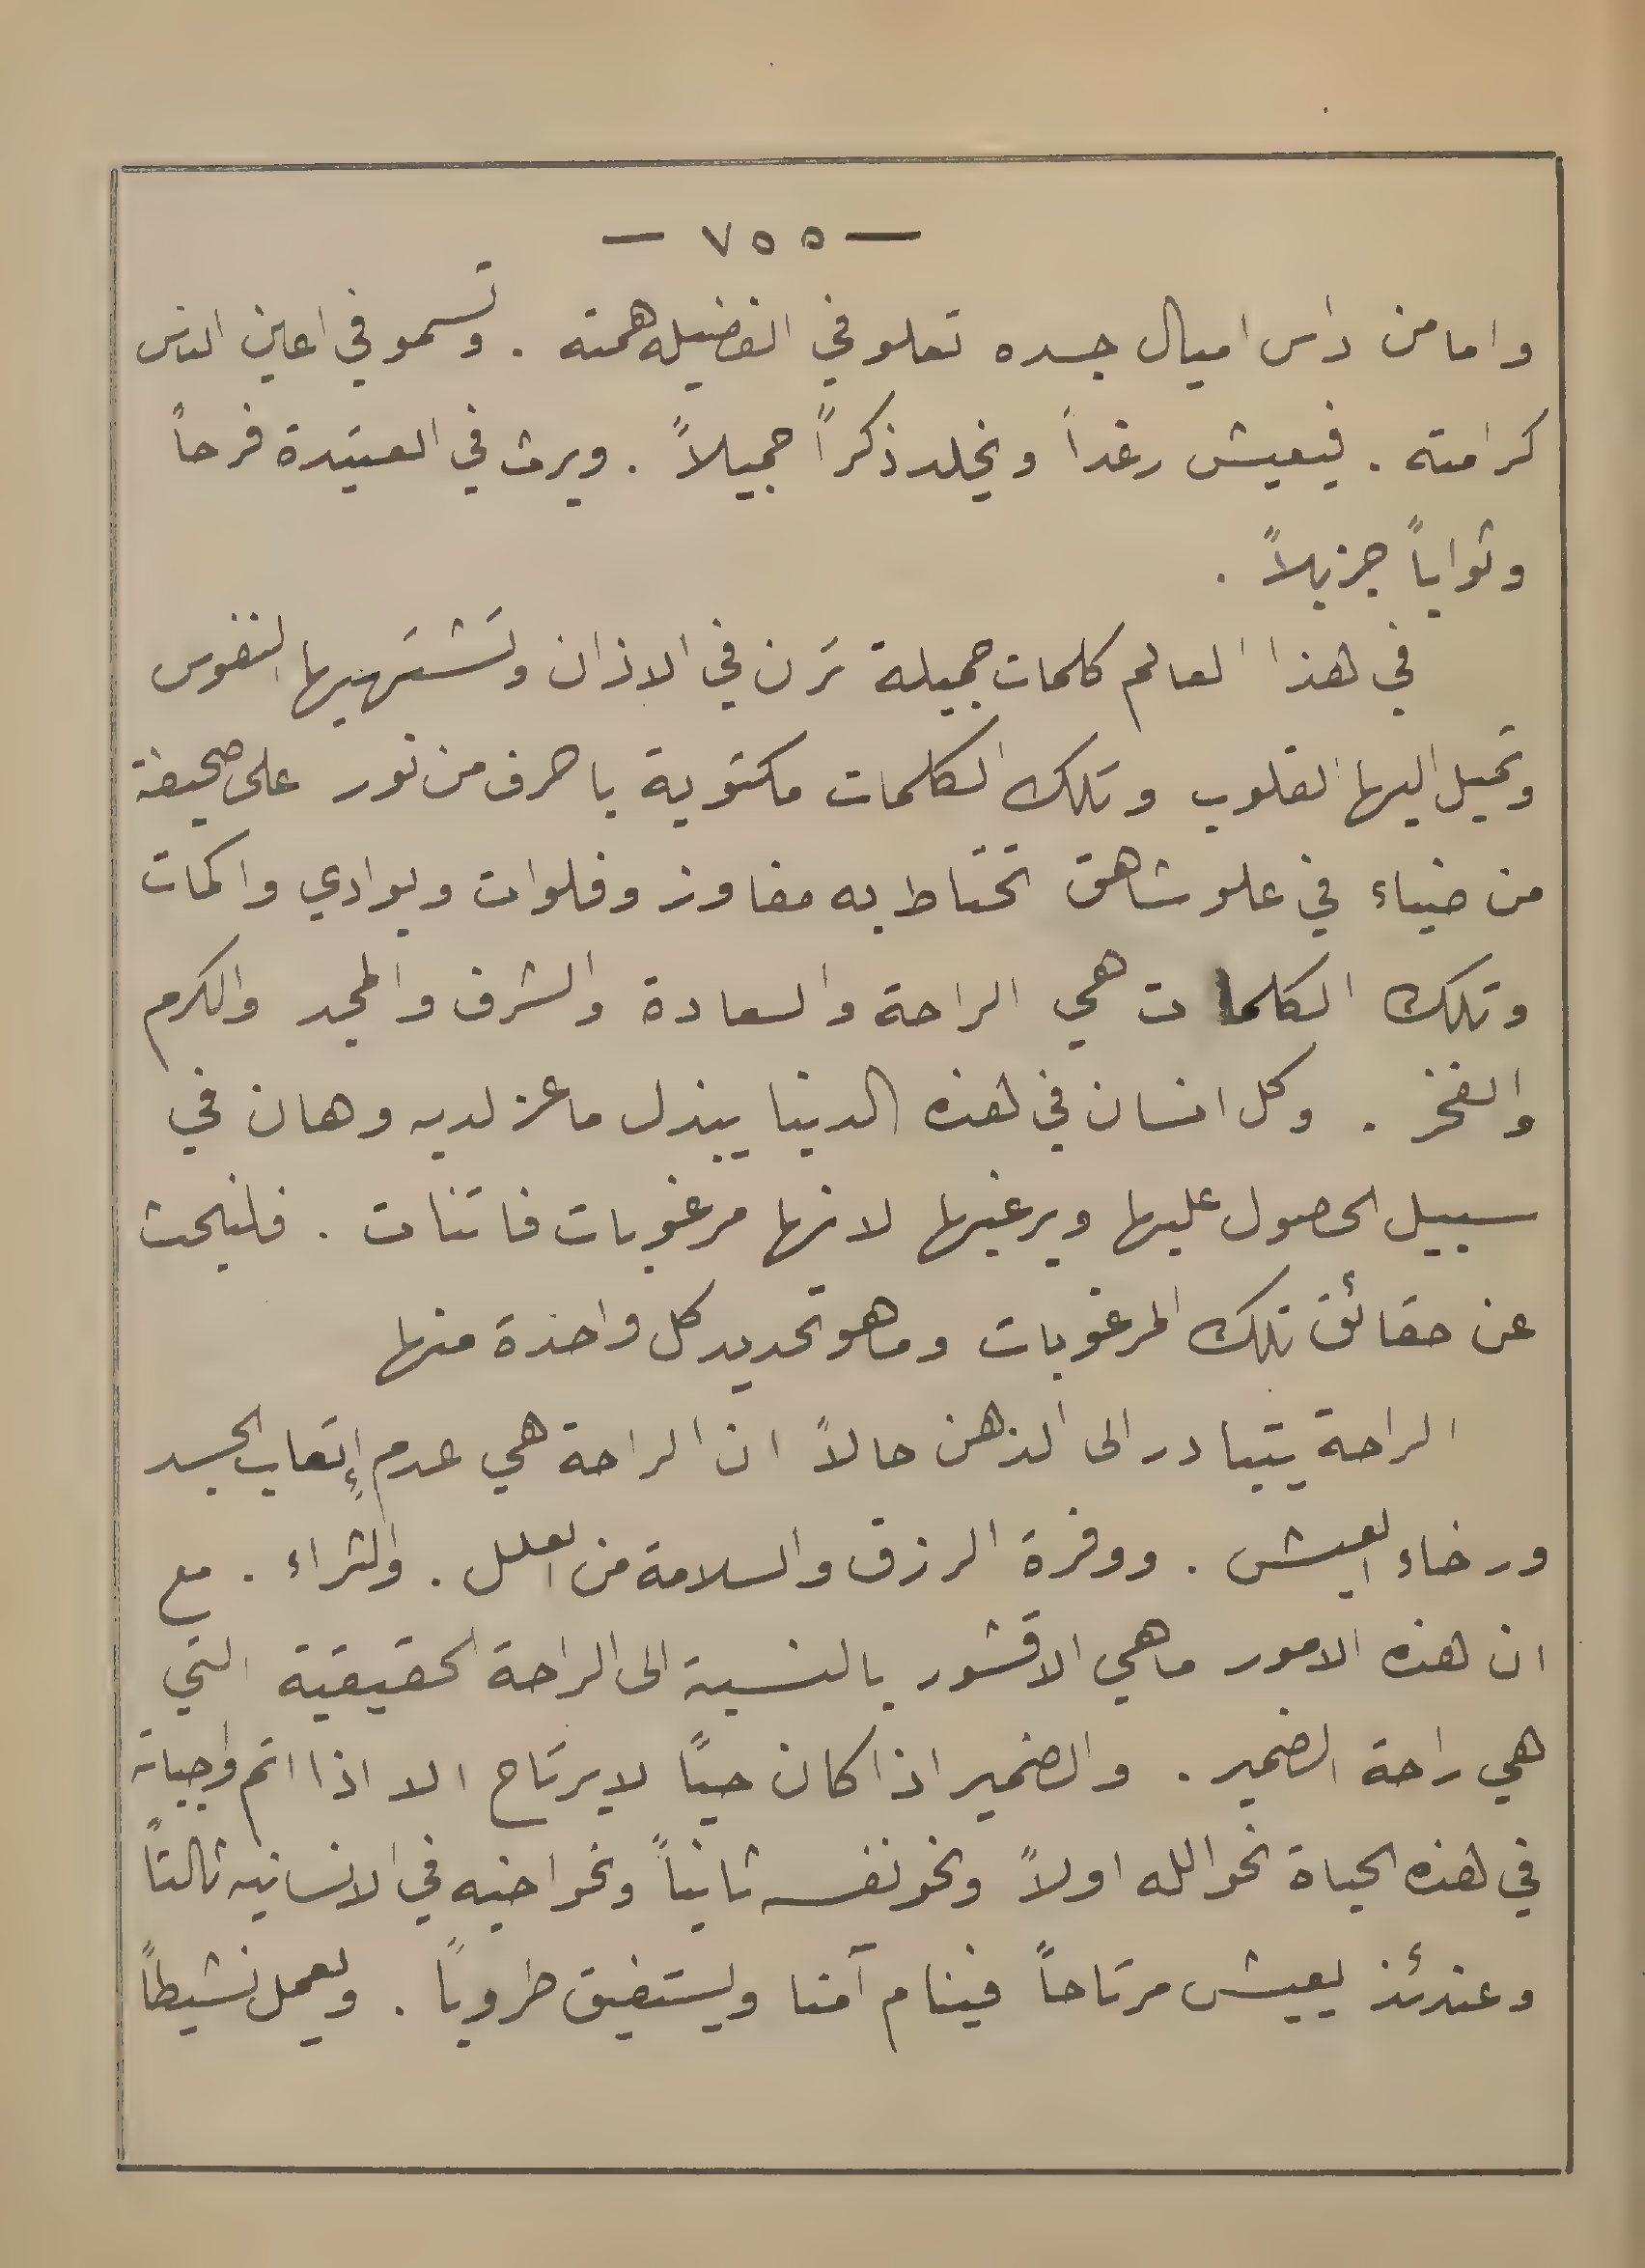 — ٧٥٥ —
واما من داس اميال جسده تعلو في الفضيله همته . وتسمو في اعين الناس
كرامته . فيعيش رغداً ويخلد ذكراً جميلاً . ويرث في العتيدة فرحاً
وثواباً جزيلاً .
في هذا العالم كلمات جميلة ترن في الاذان وتشتهيها النفوس
وتميل اليها القلوب وتلك الكلمات مكتوبة باحرف من نور على صحيفة
من ضياء في علو شاهق تحتاط به مفاوز وفلوات وبوادي واكمات
وتلك الكلمات هي الراحة والسعادة والشرف والمجد والكرم
والفخر . وكل انسان في هذه الدنيا يبذل ما عز لديه وهان في
سبيل الحصول عليها ويرغبها لانها مرغوبات فاتنات . فلنبحث
عن حقائق تلك المرغوبات وما هو تحديد كل واحدة منها
الراحة يتبادر الى الذهن حالاً ان الراحة هي عدم إتعاب الجسد
ورخاء العيش . ووفرة الرزق والسلامة من العلل . والثراء . مع
ان هذه الامور ما هي الا قشور بالنسبة الى الراحة الحقيقية التي
هي راحة الضمير . والضمير اذا كان حياً لا يرتاح الا اذا اتم واجباته
في هذه الحياة نحو الله اولاً ونحو نفسه ثانياً ونحو اخيه في الانسانيه ثالثاً
وعندئذ يعيش مرتاحاً فينام آمنا ويستفيق طروباً . ويعمل نشيطاً